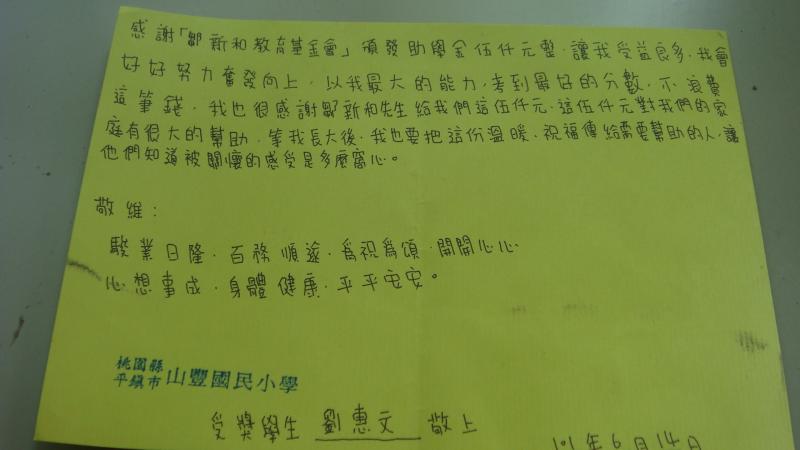 感謝「鄒新和教育基金會」頒發助學金伍仟元整，讓我受益良多，我會
好好努力奮發向上，以我最大的能力，考到最好的分數，不浪費
這筆錢，我也很感謝鄒新和先生給我們這伍仟元，這伍仟元對我們的家
庭有很大的幫助，等我長大後，我也要把這份溫暖、祝福傳給需要幫助的人，讓
他們知道被關懷的感受是多麼窩心。
敬維：
駿業日隆．百務順遂．為祝為頌．開開心心
心想事成．身體健康．平平安安。
桃園縣
平鎮市 山豐國民小學
受獎學生 劉惠文 敬上
101年6月14日